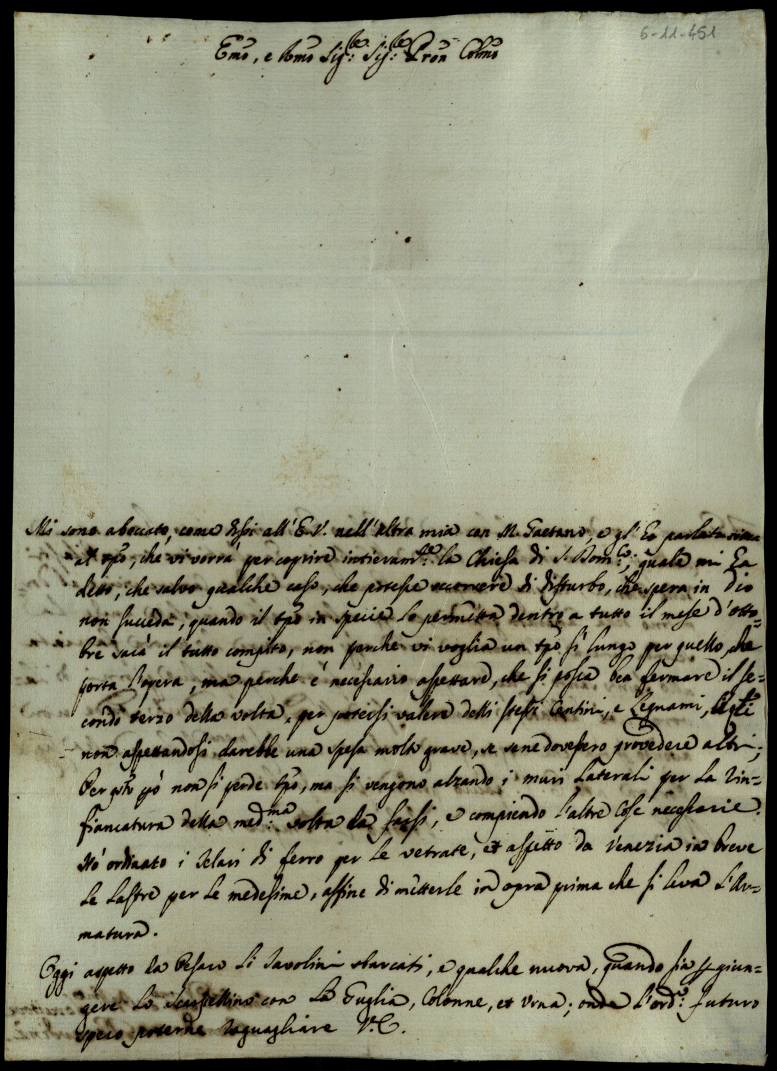 6-11-451
Emo, e Rmo Sig.re Sig.re Pron Colmo
Mi sono aboccato, come dissi all'E.V. nell'altra mia con M. Gaetano, e gl'ho parlato
al tpō, che vi vorrà per coprire intieram.te la Chiesa di S. Dom.co; quale mi ha
detto, che salvo qualche caso, che potesse occorrere di disturbo, che spera in Dio
non succeda, quando il tpō in specie lo permitta dentro a tutto il mese d'otto=
bre sarà il tutto compito, non perche vi voglia un tpō sì lungo per quello, che
porta l'opera, ma perche è necessario aspettare, che si possa ben fermare il se=
condo terzo della volta, per potersi valere delli stessi Centini, e Legnami,
non aspettandosi darebbe una spesa molto grave, se sene dovessero provedere altri;
Per qsto pō non si perde tpō, ma si vengono alzando i muri laterali per la rin=
fiancatura della med.ma volta da farsi, e compiendo l'altre cose necessarie.
Hò ordinato i Telari di ferro per le vetrate, et aspetto da Venezia in breve
le lastre per le medesime, affine di metterle in opra prima che si leva l'Ar=
matura.
Oggi aspetto da Pesaro li Tavolini sbarcati, e qualche nuova, quando sia p giun=
gere lo Scarpellino con la Guglia, Colonne, et Urna; onde l'ord.o futuro
spero poterne raguagliare V.E.